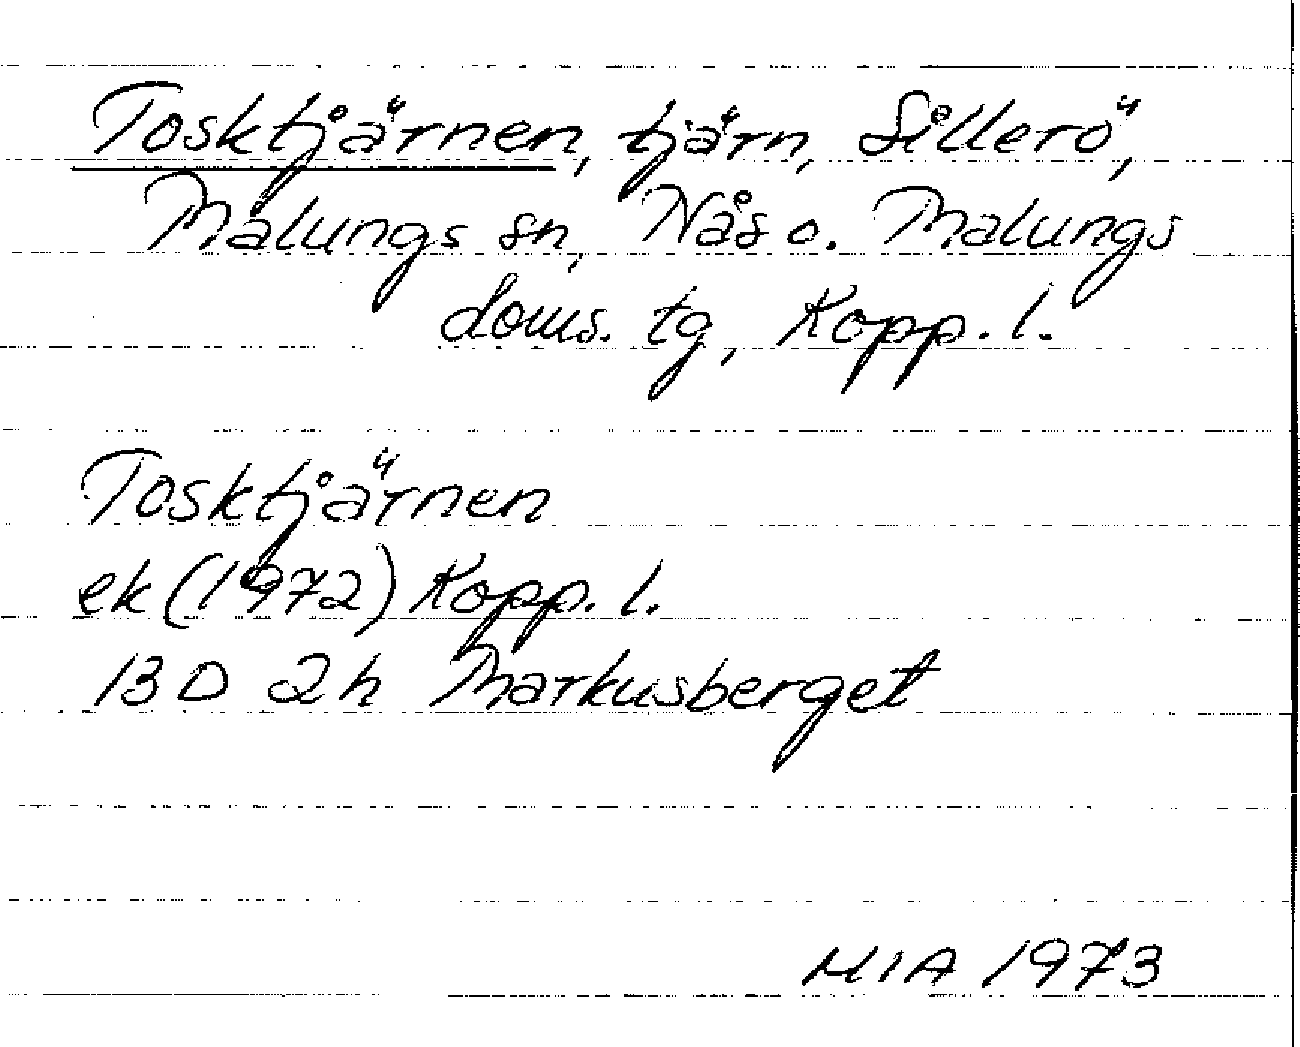 Tosktjärnen, tjärn, Sillerö,
Malungs sn, Nås o. Malungs
doms. tg, Kopp. l.
Tosktjärnen
ek (1972) Kopp. l.
13 D 2h Markusberget
MIA 1973